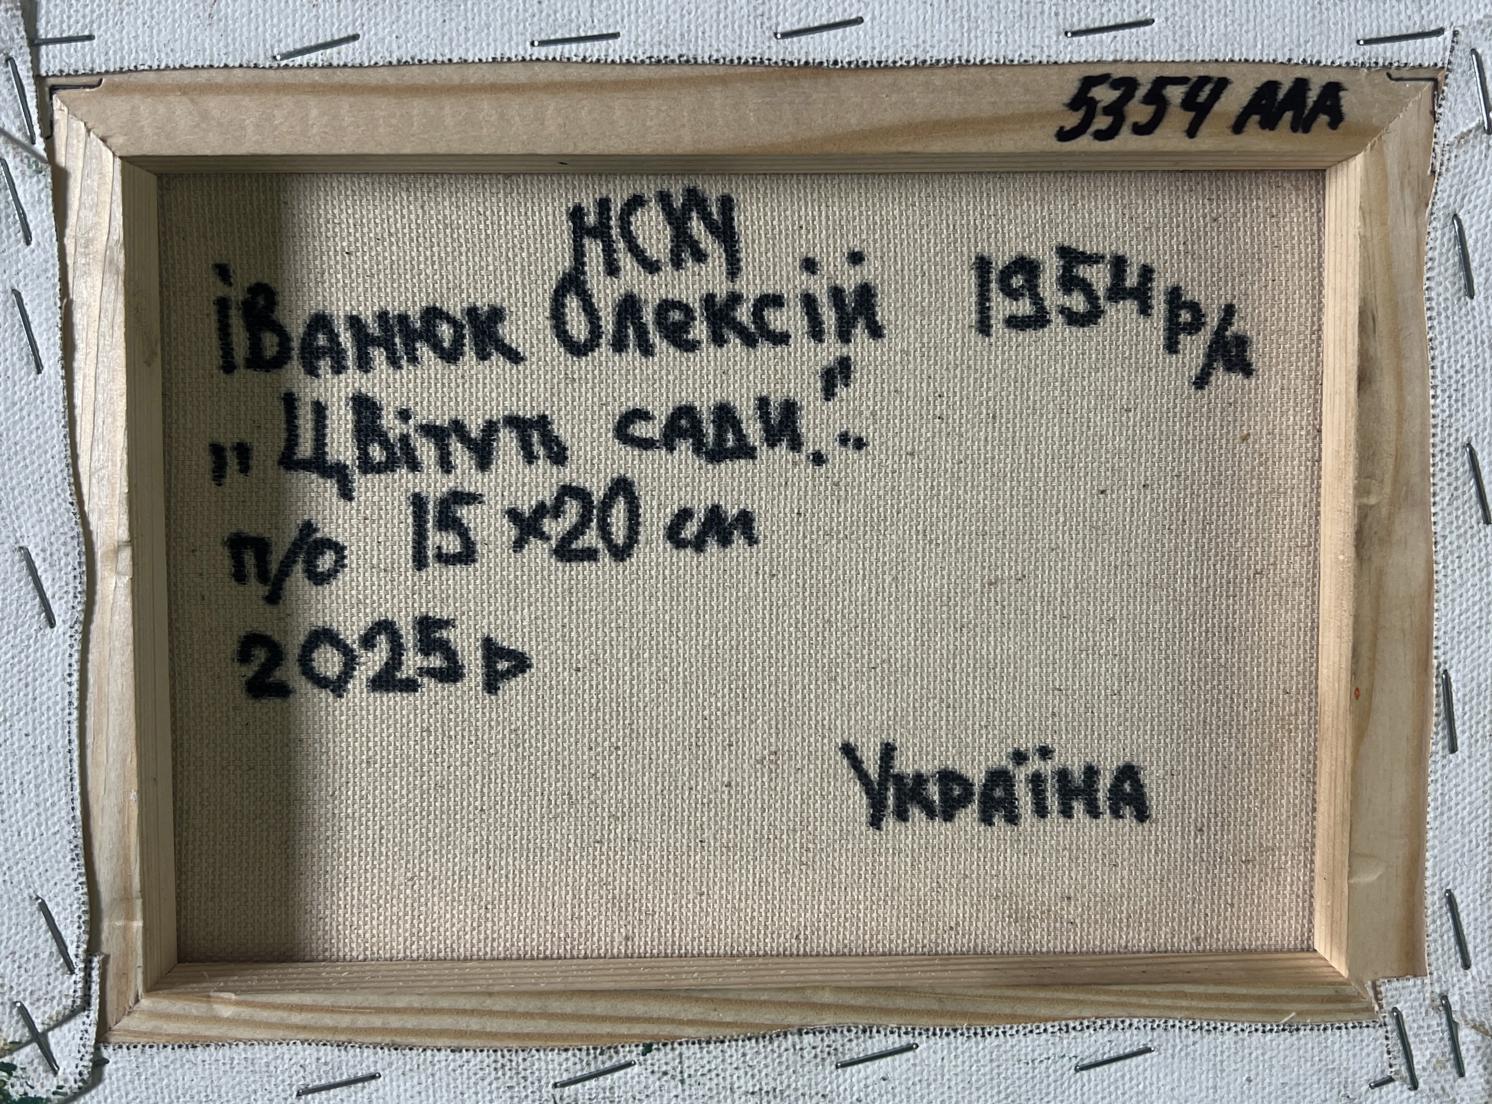 5354 ААА
НСХУ
Іванюк Олексій 1954 р/н
„Цвітуть сади..."
п/о 15×20 см
2025р
Україна